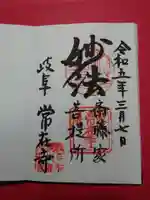 令和五年三月七日
斎藤家
菩提所
妙法
岐阜 常在寺